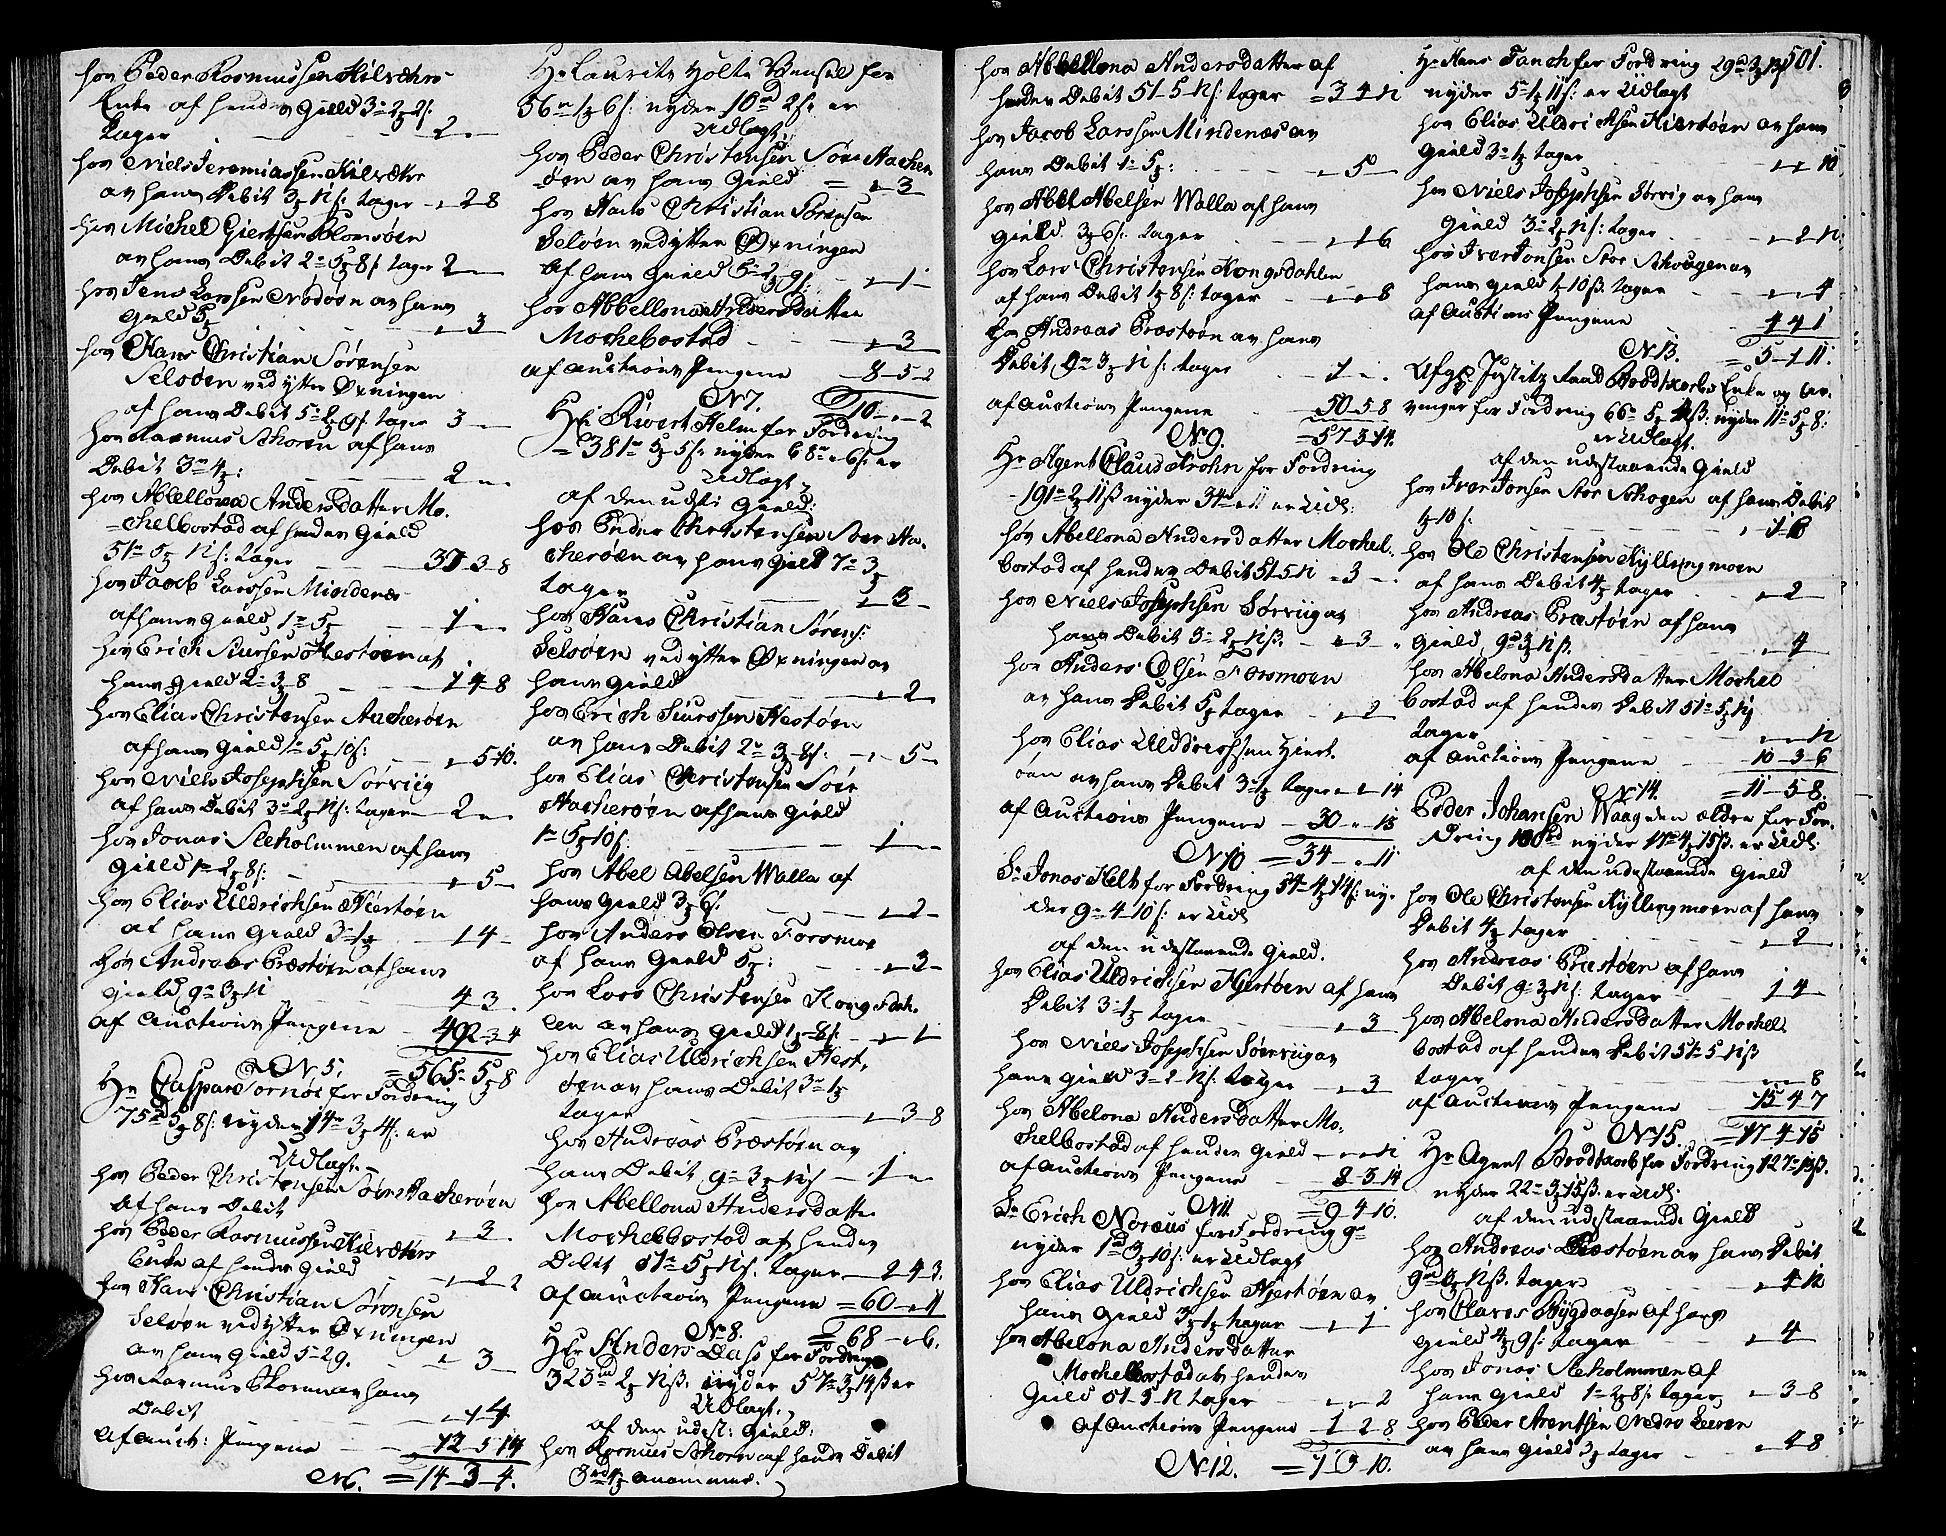 hos Peder Rasmussen Kilvætters
Enke af hendes Gield 3 - 2 - 2 s:
tager 2 -
hos Niels Jeremiassen Kilvætter
av hans Debit 3 - N s: tager - 2 8
hos Michel Giertsen Blomsøen
av hans Debit 2 - 5 - 8 s. tager 2 -
hos Jens Larssen Nødøen av hans
Gield 5 - 3
hos Hans Christian Sørensen
Selsøen ved ytter Øxningen
af hans Debit 5 - 2 - 9 s. tager 3 -
hos Rasmus Schoren af hans
Debit 3 - 4: 2 -
hos Abellona Andersdatter Mo-
chelbostad af hendes Gield
51 - 5 - N s: tager 37 - 3 - 8
hos Jacob Larssen Mindenæs
af hans Gield 1 - 5 1 -
hos Erich Siurssen Hestøen af
hans Gield 2 - 3 - 8 1 4 - 8
hos Elias Christensen Aacherøen
af hans Gield 1 - 5 - 10 s: - 5 - 10.
hos Niels Josephsen Sørviig
af hans Debit 3 - 2 - N s: tager 2 -
hos Jonas Seeholmmen af hans
Gield 1 - 2 - 8 s: - 5 -
hos Elias Uldrichsen Hiertøen
af hans Gield 3 - 1 1 4 -
hos Andreas Præstøen af hans
Gield 9 - 3 - N 4 3.
af Auctions Pengene 492 - 3 4
N 5. = 565 - 5 - 8
Hr Caspar Tornøe for Fordring
75 - 5 - 8 s: nyder 14 - 3 - 4 s: er
Udlagt.
hos Peder Christensen Søer Aacherøen
af hans Debit - 3 -
hos Peder Rasmussen Kilvætters
Enke af hendes Gield - 2 2
hos Hans Christian Sørensen
Selsøen ved ytter Øxningen
av hans Gield 5 - 2 9. - 3 -
hos Rasmus Schoren av hans
Debit - 1 4
af Auct: Pengene 12 - 5 14
N 6. = 14 - 3 - 4.
Hr Laurits Holte Bensel for
56 - 1 - 6 s: nyder 10 - 2 s: er
Udlagt.
hos Peder Christensen Søer Aacher
øen av hans Gield = - 3 -
hos Hans Christian Sørensen
Selsøen ved ytter Øxningen
af hans Gield 5 - 2 - 9 s: - 1 -
hos Abbellona Andersdatter
Mochebostad - 3 -
af Auctions Pengene - 8 - 5 - 2
N 7. 10 - - 2
Hr Rivert Helm for Fordring
= 381 - 5 - 5 s: nyder 68 - 6 s: er
Udlagt.
af den udst: Gield:
hos Peder Christensen Søer Aa-
cherøen av hans Gield 7 - 3
tager - 3 -
hos Hans Christian Sørens:
Selsøen ved ytter Øxningen av
hans Gield - 2 -
hos Erich Siurssen Hestøen
av hans Debit 2 - 3 - 8 s: - 5 -
hos Elias Christensen Søer
Aacherøen af hans Gield
1 - 5 - 10 s: 1 -
hos Abel Abelsen Walla af
hans Gield 3 - 6 s: - 2 -
hos Anders Olsen Forsmoe
af hans Gield 5: - 3 -
hos Lars Christensen Kongsdah-
len av hans Gield 1 - 8 s: - 1
hos Elias Uldrichsen Hest-
øen av hans Debit 3 - 1
tager - 3 - 8
hos Andreas Præstøen av
hans Debit 9 - 3 - N s - 1 -
hos Abellona Andersdatter
Mochelbostad af hendes
Debit 51 - 5 - N s: tager 2 4 3.
af Auctions Pengene = 60 - 11
N 8. = 68 - 6.
Hr Anders Dass for Fordring
323 - 2 - N s. nyder 57 - 3 - 14 s er
Udlagt.
af den udst: Gield:
hos Rasmus Schoren af hans Debit
3 - 4 annammer.
hos Abbellona Andersdatter af
hendes Debit 51 - 5 - N s: tager = 3 4 N
hos Jacob Larssen Mindenæs av
hans Debit 1 - 5: - 5 -
hos Abel Abelsen Walla af hans
Gield 3 - 6 s: tager - 1 6
hos Lars Christensen Kongsdahlen
af hans Debit 1 - 8 s: tager - - 8
hos Andreas Præstøen av hans
Debit 9 - 3 - N s: tager 1 -
af Auctions Pengene 50 - 5 8
N 9. = 57 - 3 - 14.
Hr Agent Claus Krohn for Fordring
191 - 2 - 11 s nyder 34 - 11 er Udl:
hos Abellona Andersdatter Mochel-
bostad af hendes Debit 51 - 5 - N = 3 -
hos Niels Josephsen Sørviig av
hans Debit 3 - 2 - N s. - 3 -
hos Anders Olsen Forsmoen
av hans Debit 5 tager - 2
hos Elias Uldrichsen Hiert-
øen av hans Debit 3 - 1 tager - 14
af Auctions Pengene - 30 - 13
N 10 = 34 - 11
Sr Jonas Helt for Fordring 54 - 4 - 14 s: ny-
der 9 - 4 - 10 s: er Udl
af den udestaaende Gield.
hos Elias Uldrichsen Hiertøen af hans
Debit 3 - 1 tager - 3
hos Niels Josephsen Sørviig av
hans Gield 3 - 2 - N s: tager - 3
hos Abelona Andersdatter Mo-
chelbostad af hendes Gield - - N
af Auctions Pengene 8 - 3 14
N 11. = 9 - 4 10.
Sr Erich Noraus for Fordring 9
nyder 1 - 3 - 10 s: er Udlagt
hos Elias Uldrichsen Hiertøen av
hans Gield 3 - 1 tager - 1
hos Abelona Andersdatter
Mochelbostad af hendes
Gield 51 - 5 - N tager - - 2
af Auctions Pengene 1 - 2 8
N 12. = 1 - 3 - 10.
Hr Hans Fanch for Fordring 29 - 3 - 13 501.
nyder 5 - 1 - 11 s: er Udlagt
hos Elias Uldrichsen Hiertøen av hans
Gield 3 - 1 tager - - 10
hos Niels Josephsen Sørvig av hans
Gield 3 - 2 - N s: tager - 2 N
hos Iver Jonsen Stor Schougen av
hans Gield 1 - 10 s. tager - - 4
af Auctions Pengene 4 4 1
N 13. = 5 - 1 11.
Afg: Justitz Raad Brodtkorbs Enke og Ar-
vinger for Fordring 66 - 5 - s: nyder 11 - 5 - 8:
er Udlagt.
af den udestaaende Gield
hos Iver Jonsen Stor Schogen af hans Debit
1 - 10 s: - 1 8
hos Ole Christensen Kyllingmoen
af hans Debit 4 tager - 2
hos Andreas Præstøen af hans
Gield 9 - 3 - N s. - 4
hos Abelona Andersdatter Mochel
bostad af hendes Debit 51 - 5 - N
tager - - N
af Auctions Pengene 10 - 3 6
N 14 = 11 - 5 8.
Peder Johansen Waag den ældre for For-
dring 100 nyder 17 - 4 - 15 s. er Udl:
af den udestaaende Gield
hos Ole Christensen Kyllingmoen af hans
Debit 4 tager - 2
hos Andreas Præstøen af hans
Debit 9 - 3 - N s: tager 1 4 -
hos Abelona Andersdatter Mochel
bostad af hendes Debit 51 - 5 - N s
tager - - 8
af Auctions Pengene 15 4 7
N 15. = 17 - 4 - 15
Hr Agent Brodtkorb for Fordring 127 - 13 s.
nyder 22 - 3 - 15 s. er Udl:
af den udestaaende Gield
hos Andreas Præstøen av hans Debit
9 - 3 - N s. tager - 4 N
hos Clares Bygdaasen af hans
Gield 4 - 9 s: tager - 4 -
hos Jonas Seeholmmen af
hans Gield 1 - 2 - 8 s: tager - 3 - 8
hos Peder Arentsen Nedre Leeren
av hans Gield 3 tager - 4 8